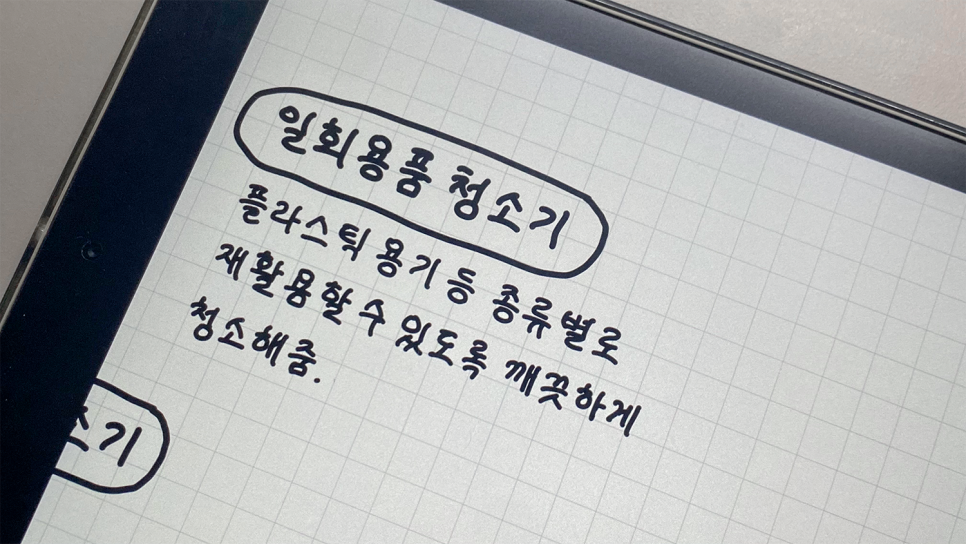 일회용품 청소기
플라스틱 용기 등 종류별로
재활용할 수 있도록 깨끗하게
청소해줌.
소기